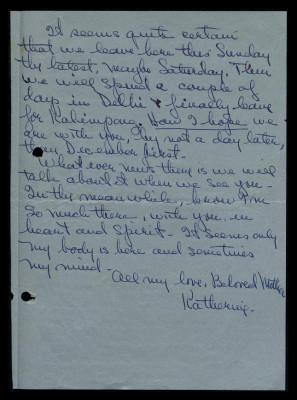 It seems quite certain
that we leave here this Sunday
the latest, maybe Saturday. Then
we will spend a couple of
days in Delhi & finally leave
for Kalimpong. How I hope we
are with you, my not a day later,
than December first-
What ever news there is we will
talk about it when we see you -
In the meanwhile, know I'm
so much there, with you, in
heart and spirit - It seems only
my body is here and sometimes
my mind -
All my love, Beloved Mother
Katherine.